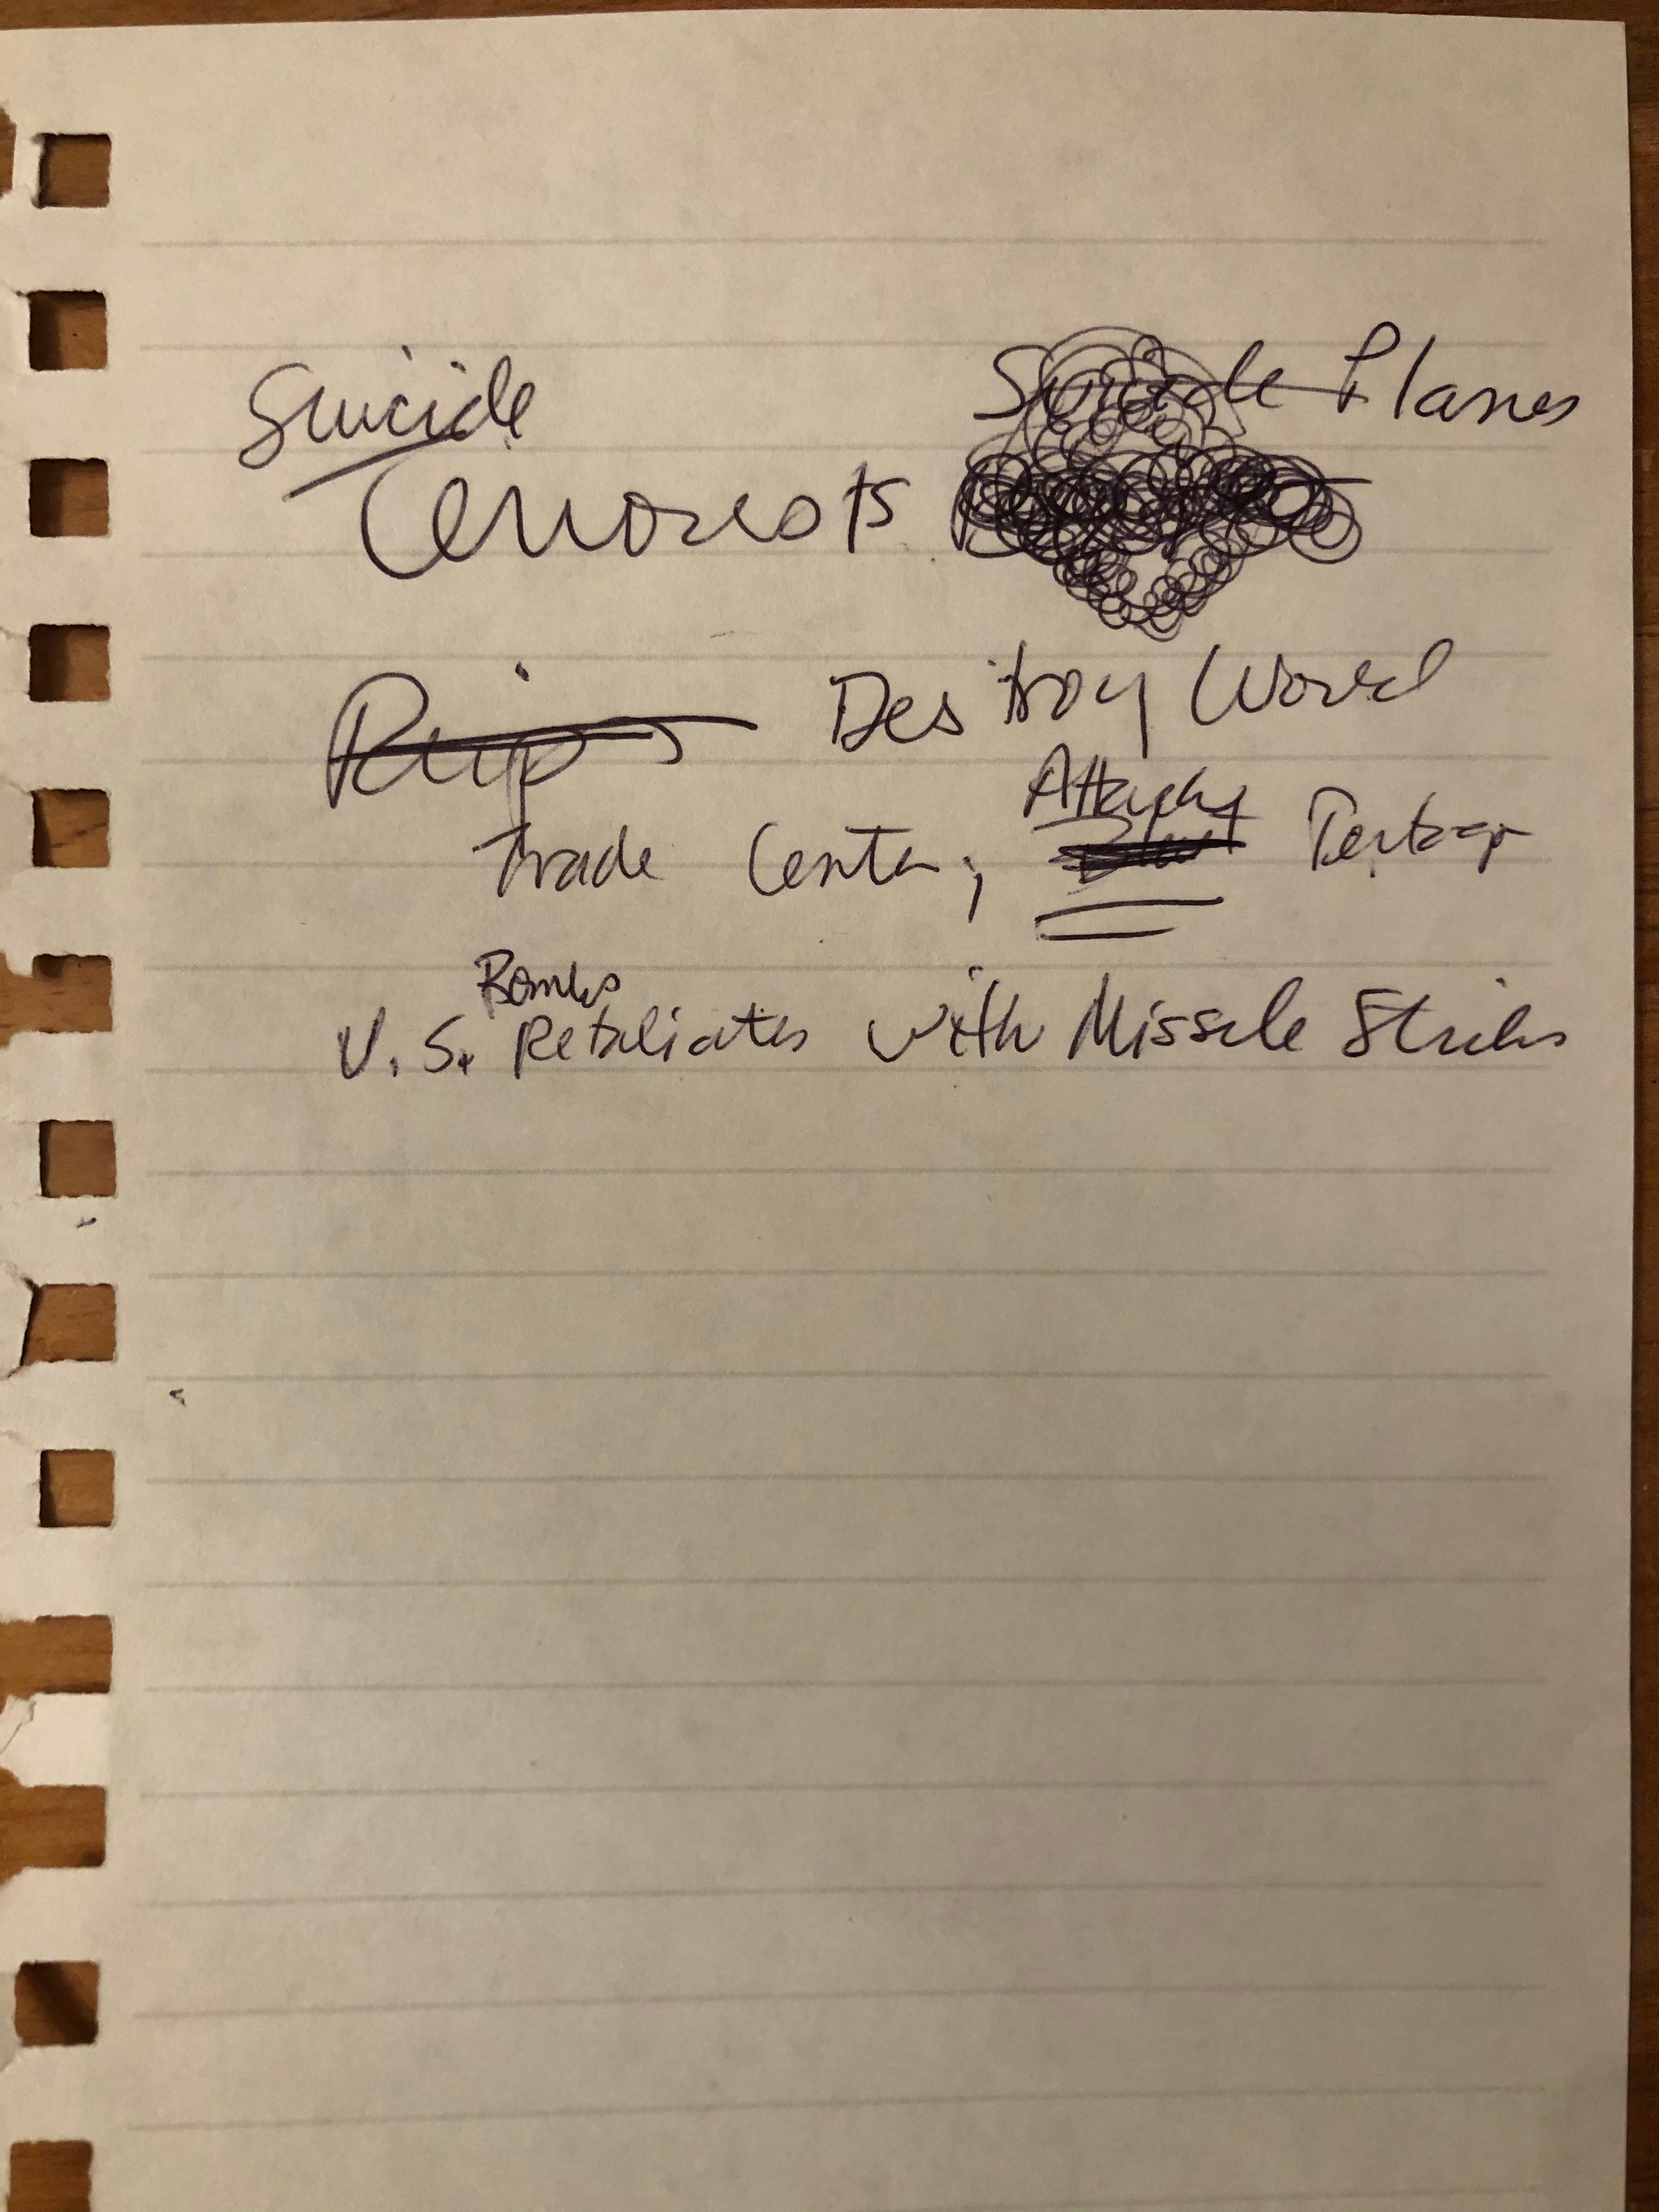 Suicide Suicide Planes
Terrorists
Destroy World
Attacks
Trade Center; Pentagon
Bombs
U.S. Retaliates with Missile Strikes